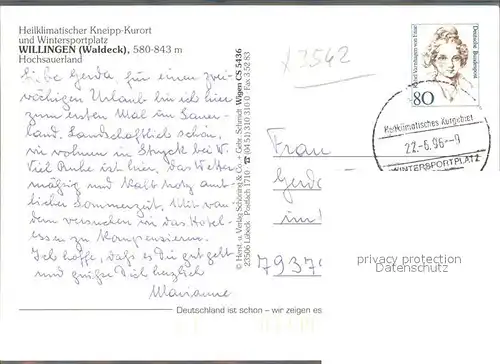 Heilklimatischer Kneipp-Kurort
und Wintersportplatz
WILLINGEN (Waldeck), 580-843 m
Hochsauerland
Liebe Gerda, für einen zwei-
wöchigen Urlaub bin ich hier
zum ersten Mal im Sauer-
land. Landschaftlich schön,
wir wohnen in Stryck bei W.
Viel Ruhe ist hier, das Wetter
mäßig und kalt trotz amt-
licher Sommerzeit. Wir
dem versuchen das Hotel-
essen zu kompensieren.
Ich hoffe, daß es Dir gut geht
und grüße Dich herzlich
Marianne
© Herst. u. Verlag Schöning & Co. + Gebr. Schmidt
23506 Lübeck · Postfach 1710 · ☎ (0451) 310 310
Wigen CS 5436
Fax 3 52 83
x3542
Rahel Varnhagen von Ense
Deutsche Bundespost
80
Heilklimatisches Kurgebiet
22.-6.96--9
WINTERSPORTPLATZ
Frau
Gerda
7937
privacy protection
Datenschutz
Deutschland ist schön – wir zeigen es